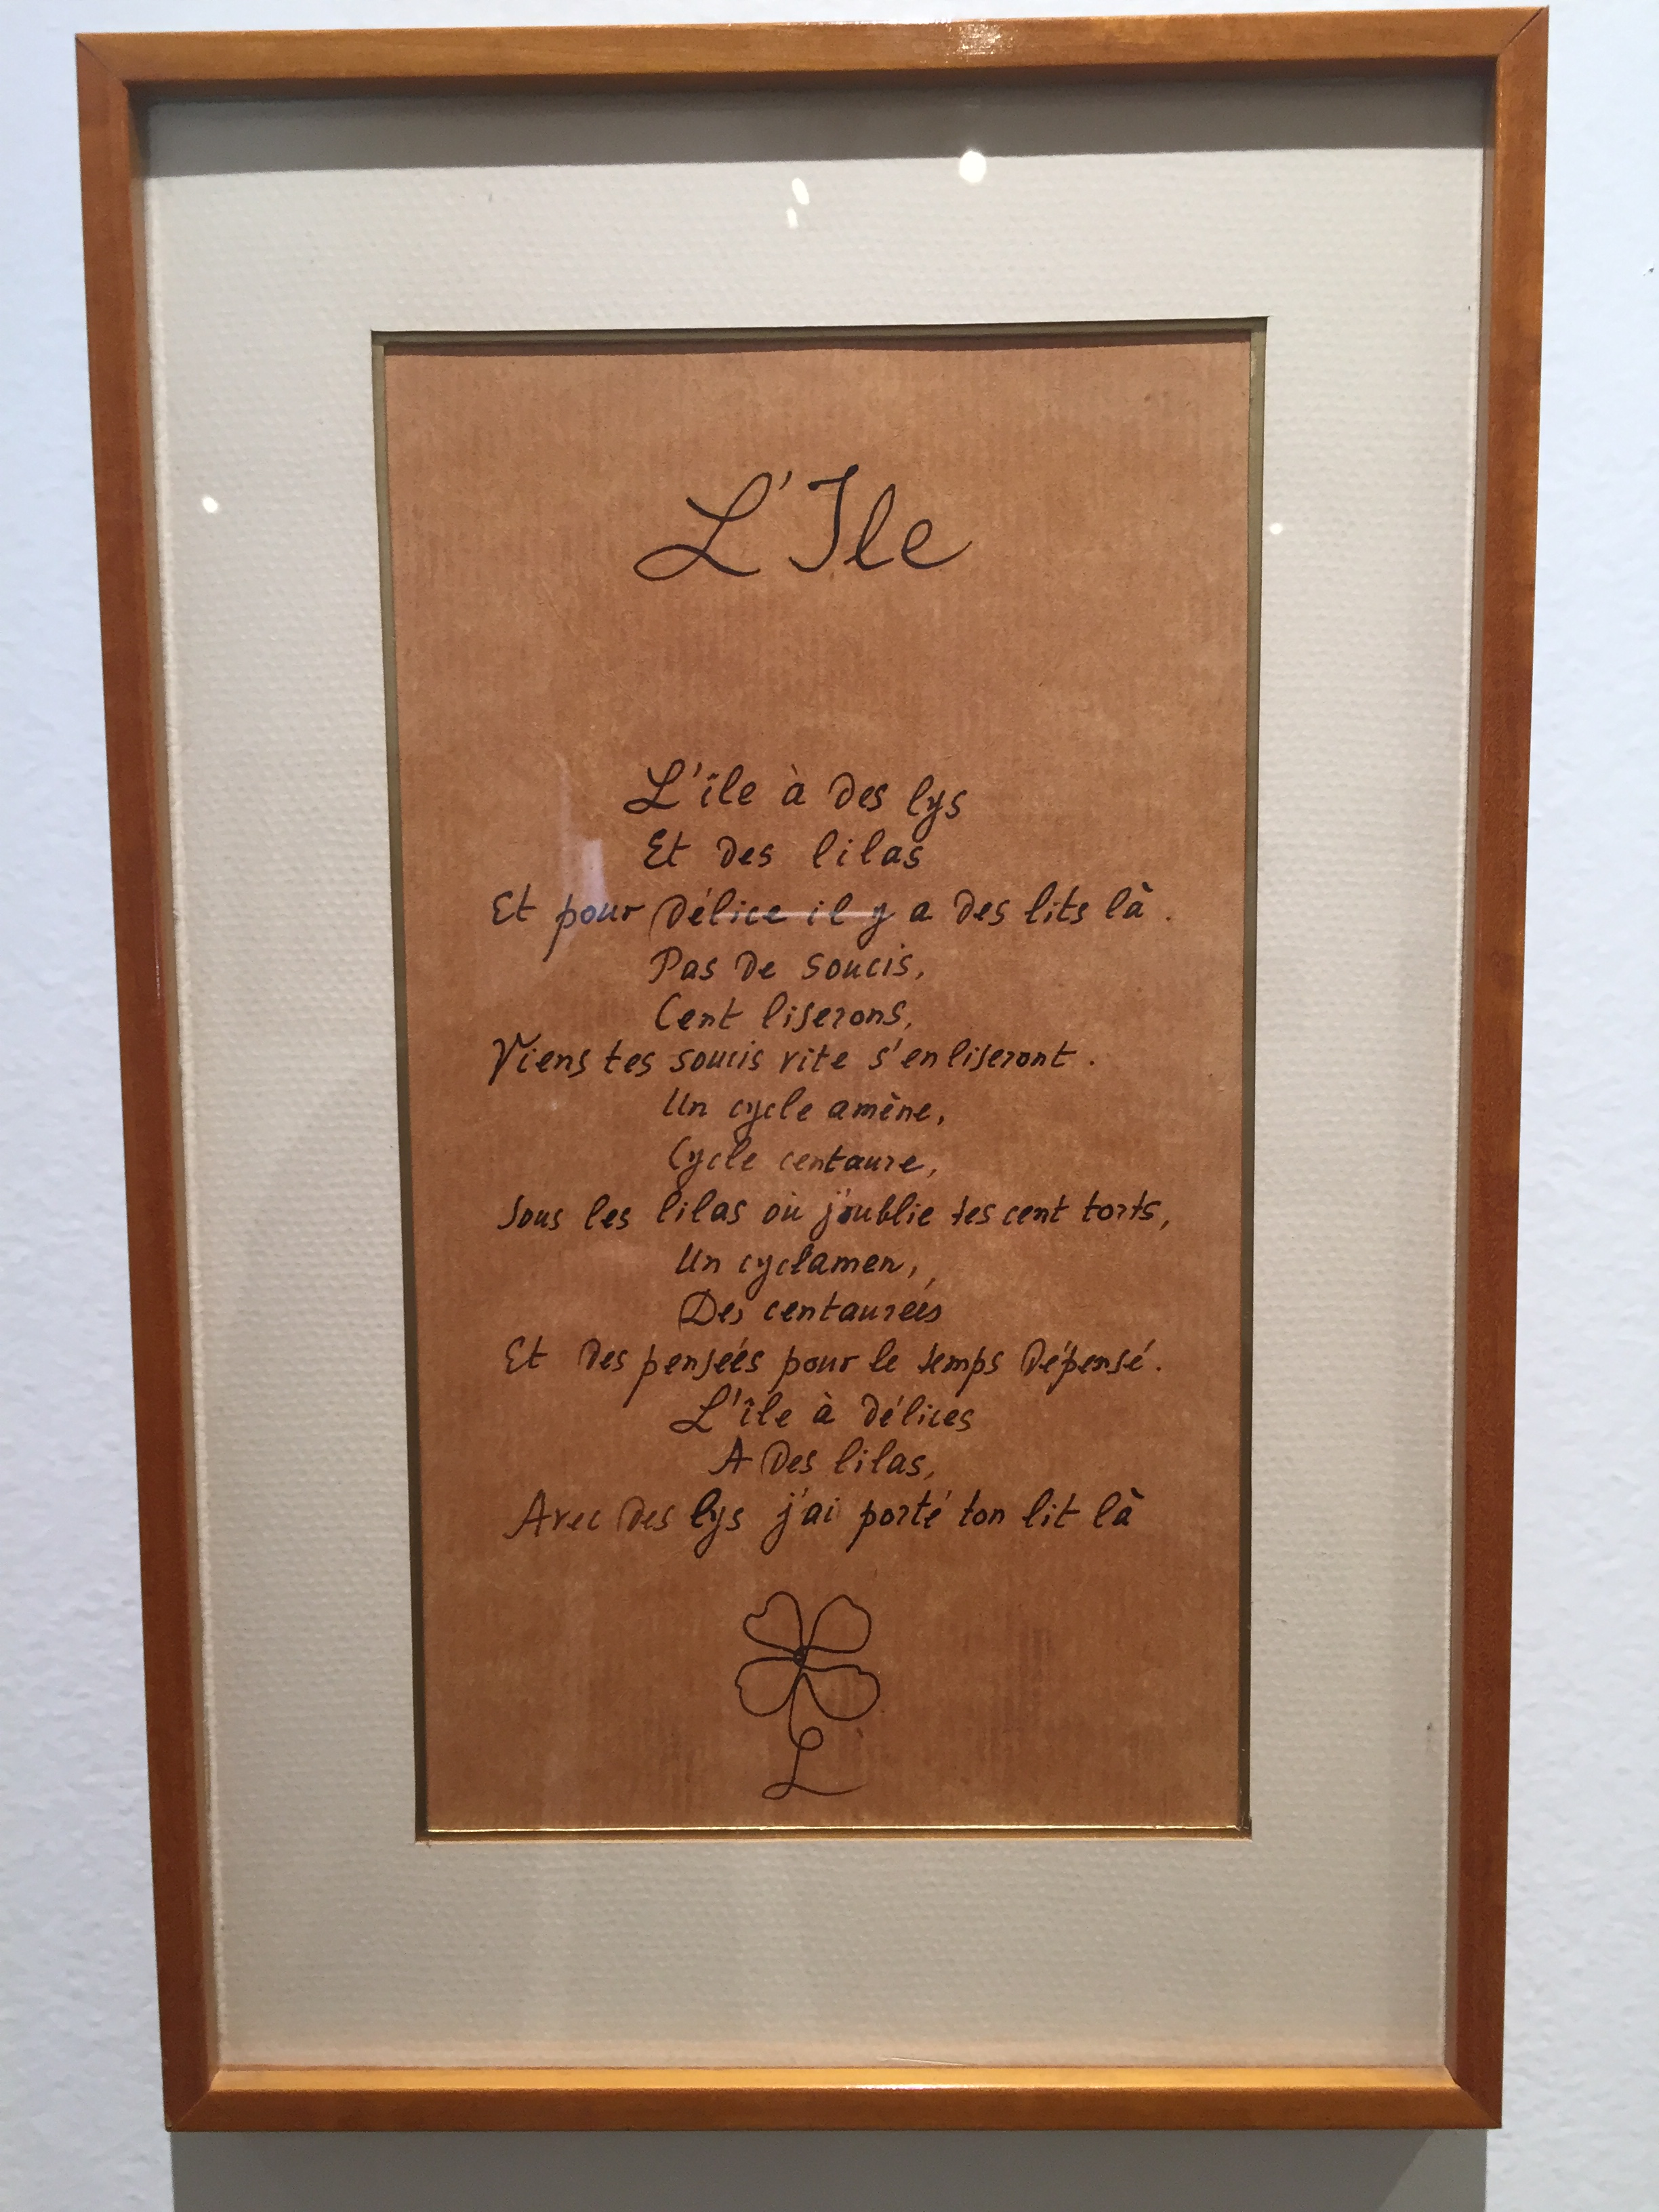 L'Ile
L'île à des lys
Et des lilas
Et pour délice il y a des lits là.
Pas de soucis,
Cent liserons,
Viens tes soucis vite s'enliseront.
Un cycle amène,
Cycle centaure,
Sous les lilas où j'oublie tes cent torts,
Un cyclamen,
Des centaurées
Et des pensées pour le temps dépensé.
L'île à délices
A des lilas,
Avec des lys j'ai porté ton lit là
L